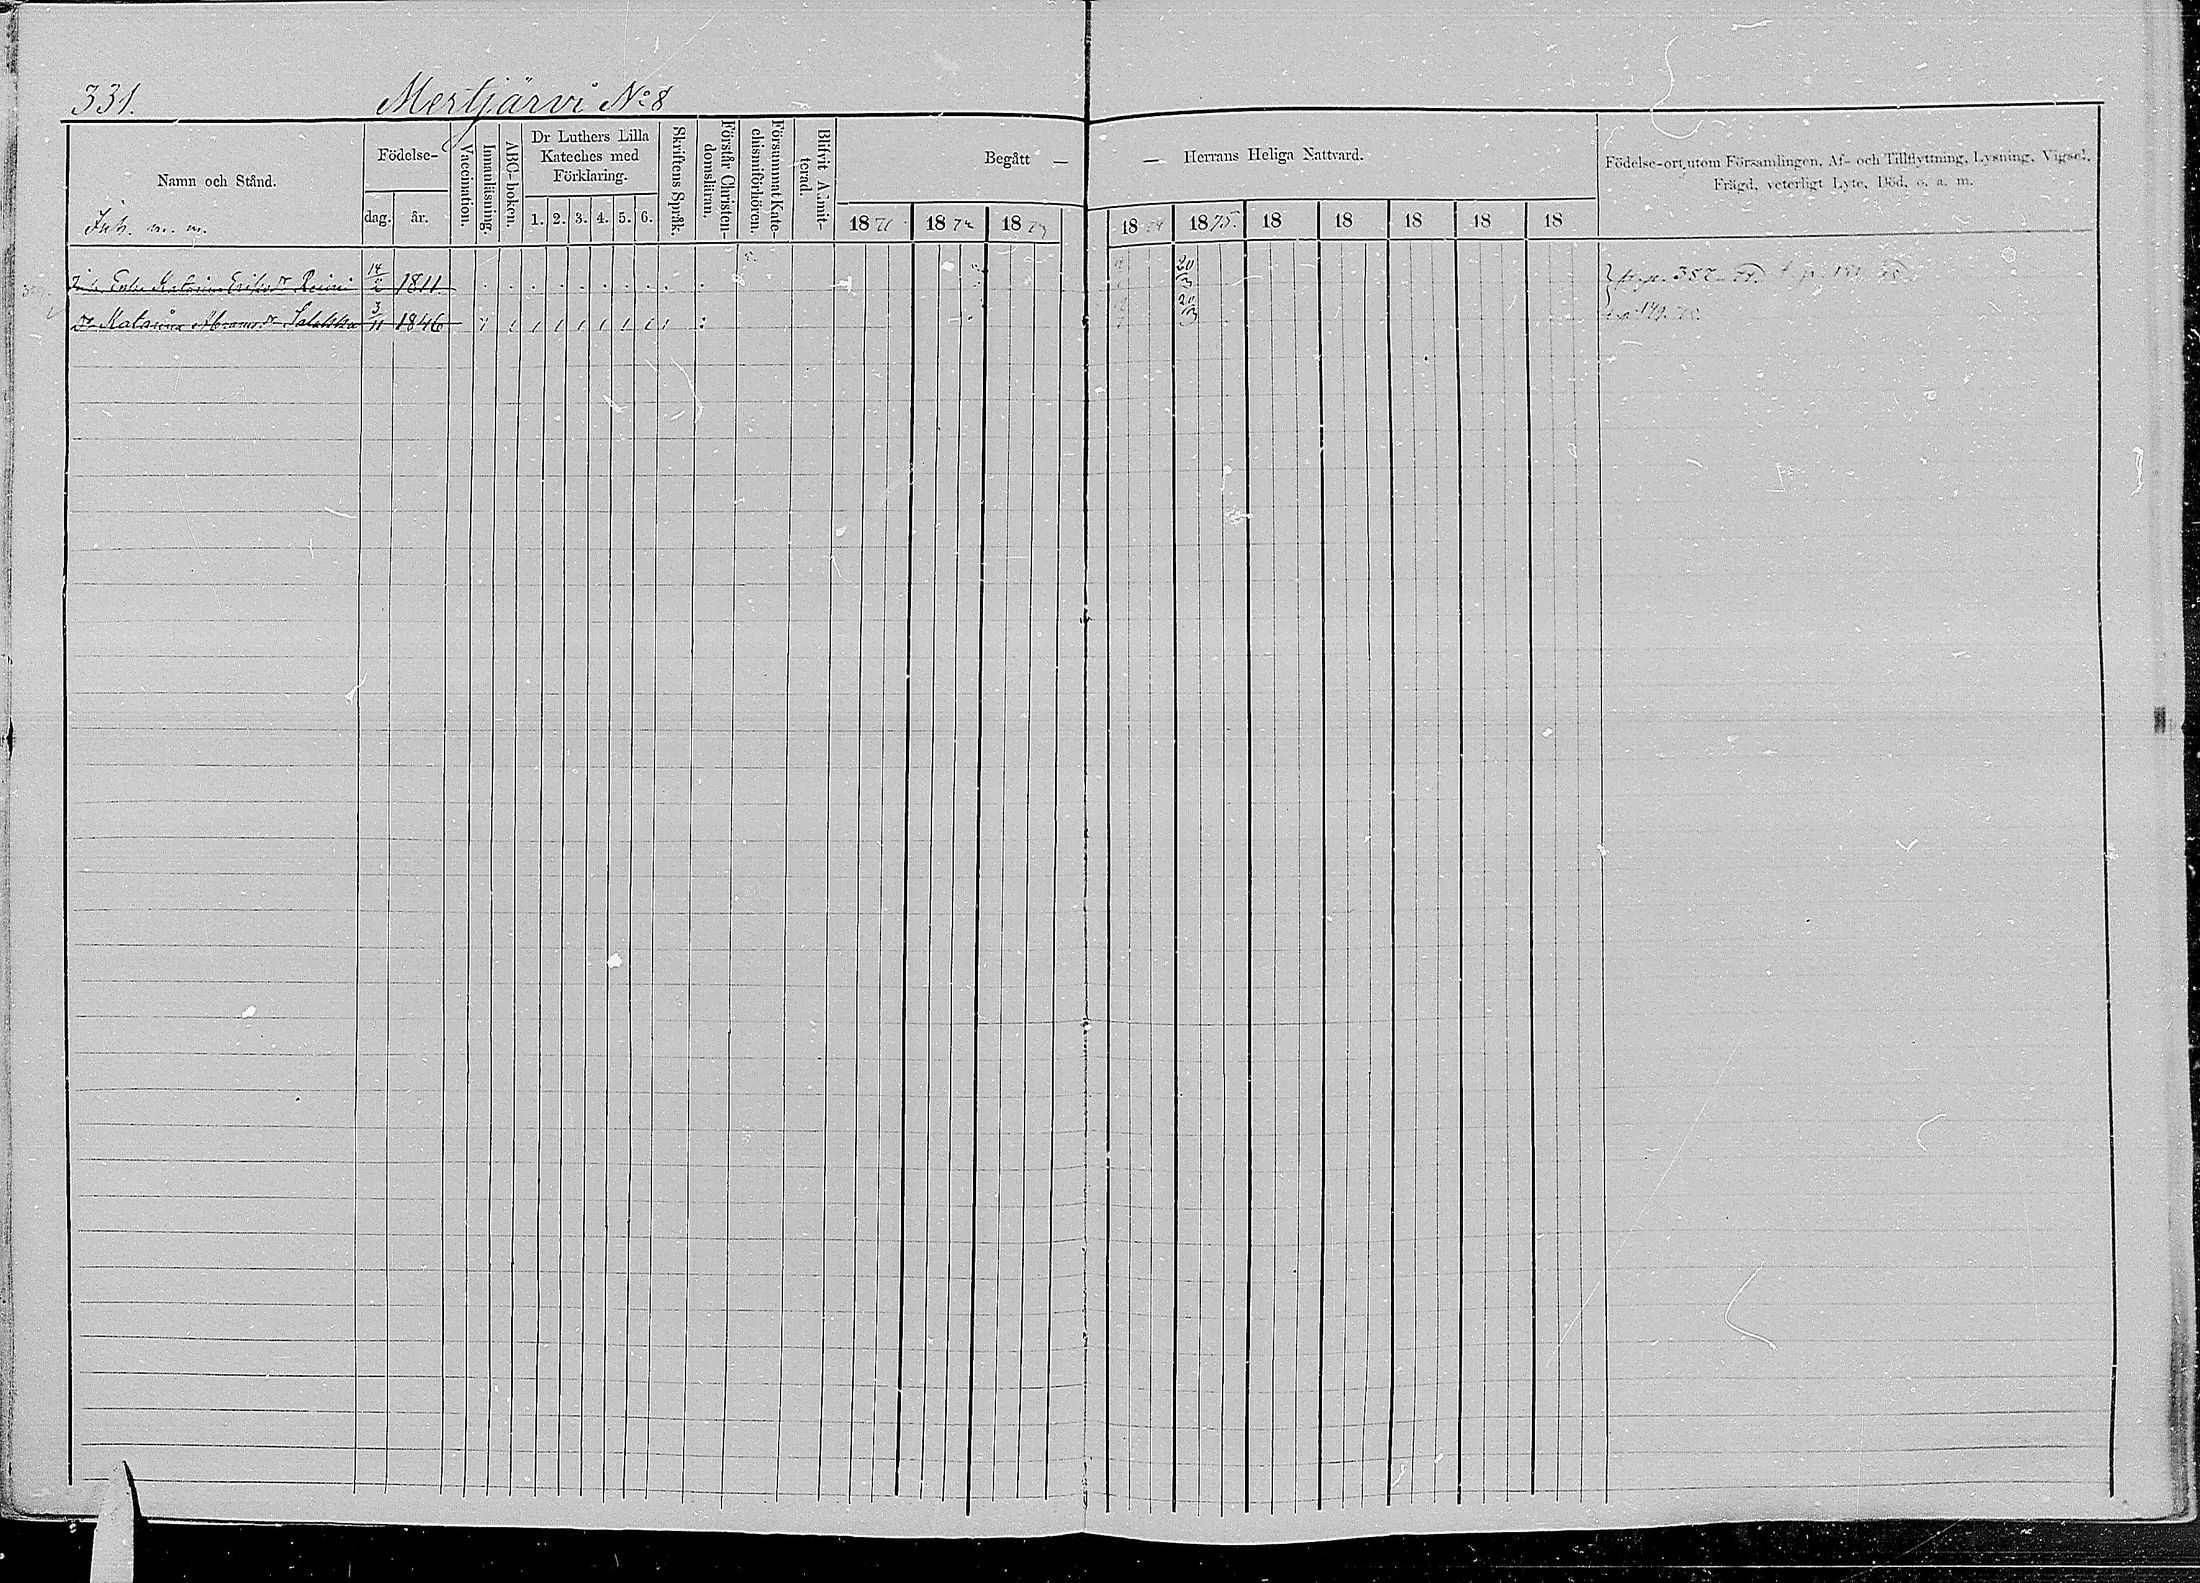 331. Mertjärvi No 8
Namn och Stånd.
Födelse-
dag. år.
Vaccination.
Innanläsning.
ABC-boken.
Dr Luthers Lilla
Kateches med
Förklaring.
1. 2. 3. 4. 5. 6.
Skriftens Språk.
Förstår Christen-
domsläran.
Försummat Kate-
chismiförhören.
Blifvit Admit-
terad.
Begått — — Herrans Heliga Nattvard.
1871 1872 1873 1874 1875. 18 18 18 18 18
Födelse-ort utom Församlingen, Af- och Tillflyttning, Lysning, Vigsel,
Frägd, veterligt Lyte, Död, o. a. m.
Inh. m. m.
Enka Katarina Eriksdr 14/2 1811 20/3 387
Do Katarina Abramsdr 3/11 1846 20/3